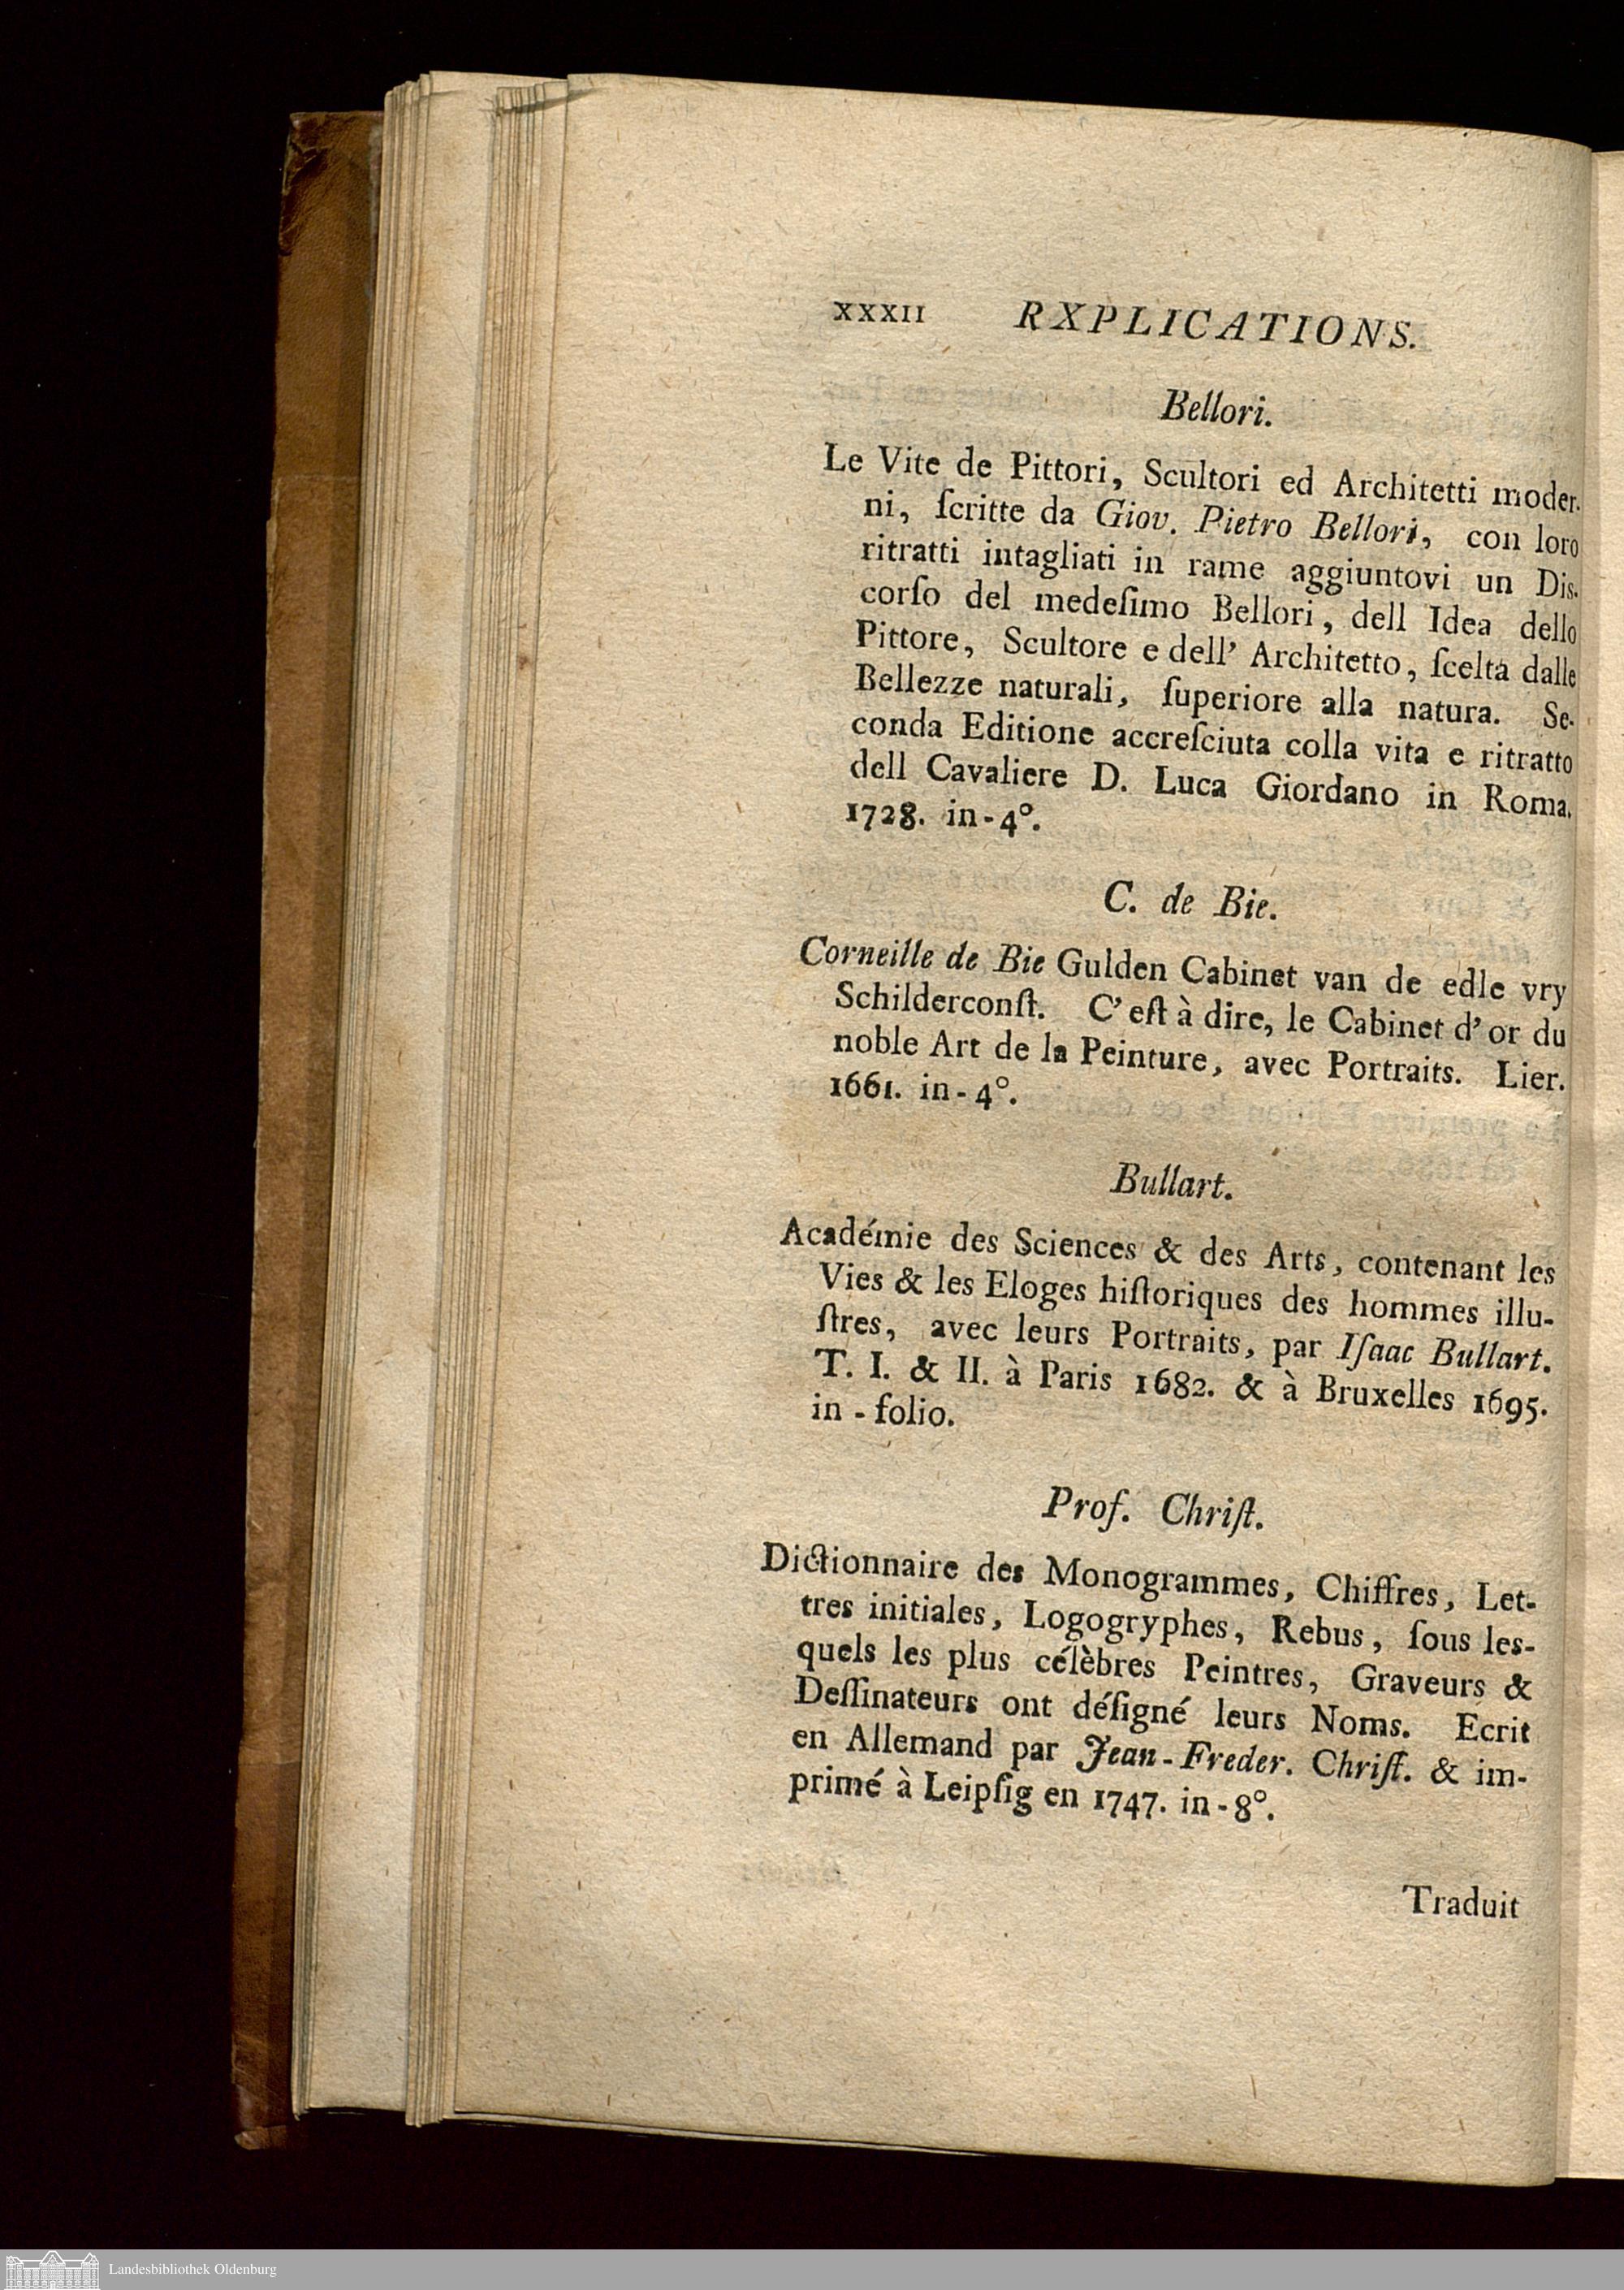 XXXII RXPLICATIONS.
Bellori.
Le Vite de Pittori, Scultori ed Architetti moder-
ni, ſcritte da Giov. Pietro Bellori, con loro
ritratti intagliati in rame aggiuntovi un Dis-
corſo del medeſimo Bellori, dell Idea dello
Pittore, Scultore e dell' Architetto, ſcelta dalle
Bellezze naturali, ſuperiore alla natura. Se-
conda Editione accreſciuta colla vita e ritratto
dell Cavaliere D. Luca Giordano in Roma.
1728. in-4°.
C. de Bie.
Corneille de Bie Gulden Cabinet van de edle vry
Schilderconſt. C'eſt à dire, le Cabinet d'or du
noble Art de la Peinture, avec Portraits. Lier.
1661. in-4°.
Bullart.
Académie des Sciences & des Arts, contenant les
Vies & les Eloges hiſtoriques des hommes illu-
ſtres, avec leurs Portraits, par Iſaac Bullart.
T. I. & II. à Paris 1682. & à Bruxelles 1695.
in-folio.
Prof. Chriſt.
Dictionnaire des Monogrammes, Chiffres, Let-
tres initiales, Logogryphes, Rebus, ſous les-
quels les plus célèbres Peintres, Graveurs &
Deſſinateurs ont déſigné leurs Noms. Ecrit
en Allemand par Jean-Freder. Chriſt. & im-
primé à Leipſig en 1747. in-8°.
Traduit
Landesbibliothek Oldenburg